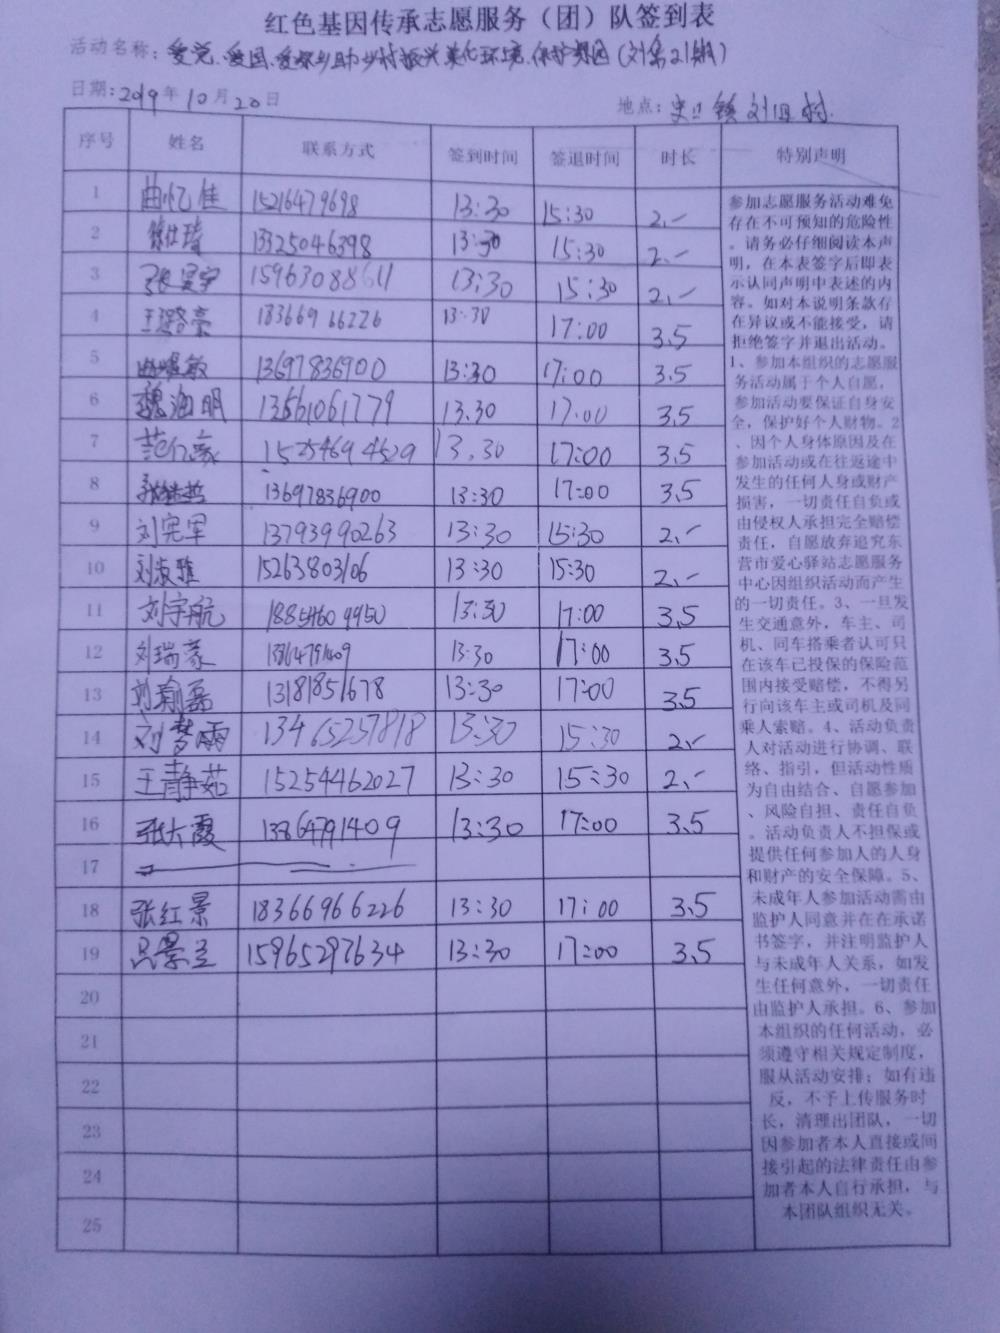 红色基因传承志愿服务（团）队签到表
活动名称：爱党、爱国、爱家乡助乡村振兴美化环境、保护 (刘集21期)
日期：2019年10月20日 地点：史口镇刘 村
序号 姓名 联系方式 签到时间 签退时间 时长 特别声明
1 曲忆佳 15216479698 13:30 15:30 2.-
2 13325046398 13:30 15:30 2.-
3 张昊宇 15963088611 13:30 15:30 2.-
4 王璐豪 18366966226 13:30 17:00 3.5
5 13697836900 13:30 17:00 3.5
6 魏海明 13561061779 13.30 17:00 3.5
7 范亿豪 15254694529 13.30 17:00 3.5
8 13697836900 13:30 17:00 3.5
9 刘宪军 13793990263 13:30 15:30 2.-
10 刘淑雅 15263803106 13:30 15:30 2.-
11 刘宇航 18854609950 13:30 17:00 3.5
12 刘瑞豪 13864791409 13:30 17:00 3.5
13 刘 磊 13181851678 13:30 17:00 3.5
14 刘梦雨 13465257818 13:30 15:30 2.-
15 王静茹 15254462027 13:30 15:30 2.-
16 张大霞 13864791409 13:30 17:00 3.5
17
18 张红景 18366966226 13:30 17:00 3.5
19 吕景 15965297634 13:30 17:00 3.5
20
21
22
23
24
25
参加志愿服务活动难免
存在不可预知的危险性
。请务必仔细阅读本声
明，在本表签字后即表
示认同声明中表述的内
容。如对本说明条款存
在异议或不能接受，请
拒绝签字并退出活动。
1、参加本组织的志愿服
务活动属于个人自愿，
参加活动要保证自身安
全，保护好个人财物。2
、因个人身体原因及在
参加活动或在往返途中
发生的任何人身或财产
损害，一切责任自负或
由侵权人承担完全赔偿
责任，自愿放弃追究东
营市爱心驿站志愿服务
中心因组织活动而产生
的一切责任。3、一旦发
生交通意外，车主、司
机、同车搭乘者认可只
在该车已投保的保险范
围内接受赔偿，不得另
行向该车主或司机及同
乘人索赔。4、活动负责
人对活动进行协调、联
络、指引，但活动性质
为自由结合、自愿参加
、风险自担、责任自负
。活动负责人不担保或
提供任何参加人的人身
和财产的安全保障。5、
未成年人参加活动需由
监护人同意并在在承诺
书签字，并注明监护人
与未成年人关系，如发
生任何意外，一切责任
由监护人承担。6、参加
本组织的任何活动，必
须遵守相关规定制度，
服从活动安排；如有违
反，不予上传服务时
长，清理出团队，一切
因参加者本人直接或间
接引起的法律责任由参
加者本人自行承担，与
本团队组织无关。